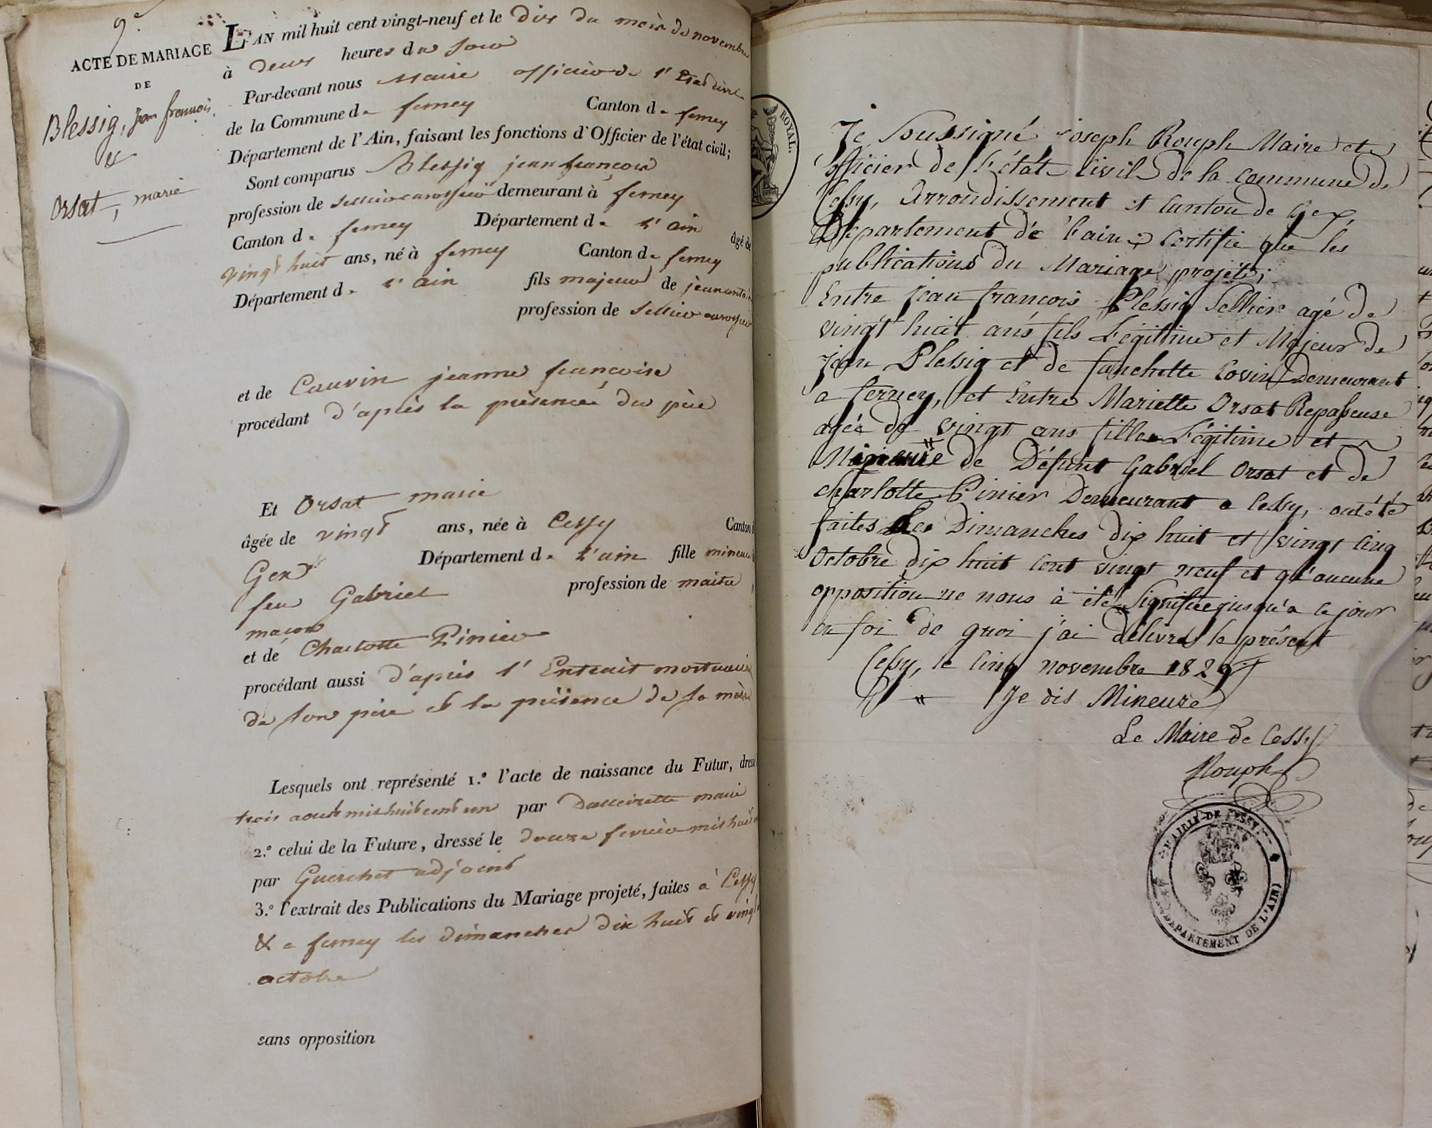 9.e
ACTE DE MARIAGE
DE
Blessig, Jean françois,
&
Orsat, marie
L'AN mil huit cent vingt-neuf et le dix du mois de novembre
à deux heures du soir
Par-devant nous Maire officier de l'Etat civil
de la Commune de ferney Canton de ferney
Département de l'Ain, faisant les fonctions d'Officier de l'état civil;
Sont comparus Blessig jean françois
profession de sellier carossier demeurant à ferney
Canton de ferney Département de l'ain âgé de
vingt huit ans, né à ferney Canton de ferney
Département de l'ain fils majeur de jean
profession de Sellier carossier
et de Cauvin jeanne françoise
procédant d'après la présence du père
Et Orsat marie
âgée de vingt ans, née à Cessy Canton
Gex Département de l'ain fille mineure
feu Gabriel profession de maitre
maçon
et de Charlotte Pinier
procédant aussi d'après l'Extrait mortuaire
de son père & la présence de sa mère
Lesquels ont représenté 1.º l'acte de naissance du Futur, dressé
trois aout mil huit cent un par marie
2.º celui de la Future, dressé le douze fevrier mil huit
par Guerchet adjoint
3.º l'extrait des Publications du Mariage projeté, faites à Cessy
& a ferney les dimanches dix huit & vingt
octobre
sans opposition
ROYAL.
Je Soussigné joseph Rouph Maire et
officier de l'état civil de la commune de
Cessy, Arrondissement et Canton de Gex,
Département de l'ain; Certifie que les
publications du Mariage projeté;
Entre Jean françois Blessig Sellier agé de
vingt huit ans fils Légitime et Majeur de
Jean Blessig et de fanchette Covin Demeurant
a ferney, et Entre Mariette Orsat Repasseuse
agée de vingt ans fille Légitime et
Mineure " de Défunt Gabriel Orsat et de
charlotte Pinier Demeurant a Cessy, ont été
faites Les Dimanches dix huit et vingt cinq
Octobre dix huit cent vingt neuf et qu'aucune
opposition ne nous à été Signifiée jusqu'a ce jour
en foi de quoi j'ai délivré le présent
Cessy, le Cinq novembre 1829
" Je dis Mineure
Le Maire de Cessy
Rouph
MAIRIE DE CESSY
DÉPARTEMENT DE L'AIN